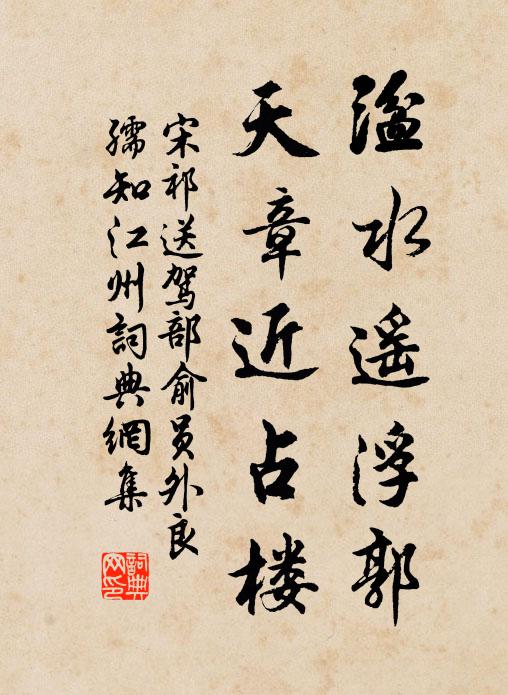 湓水遥浮郭
天章近占楼
宋祁送驾部俞员外良
孺知江州詞典網集
詞典網印